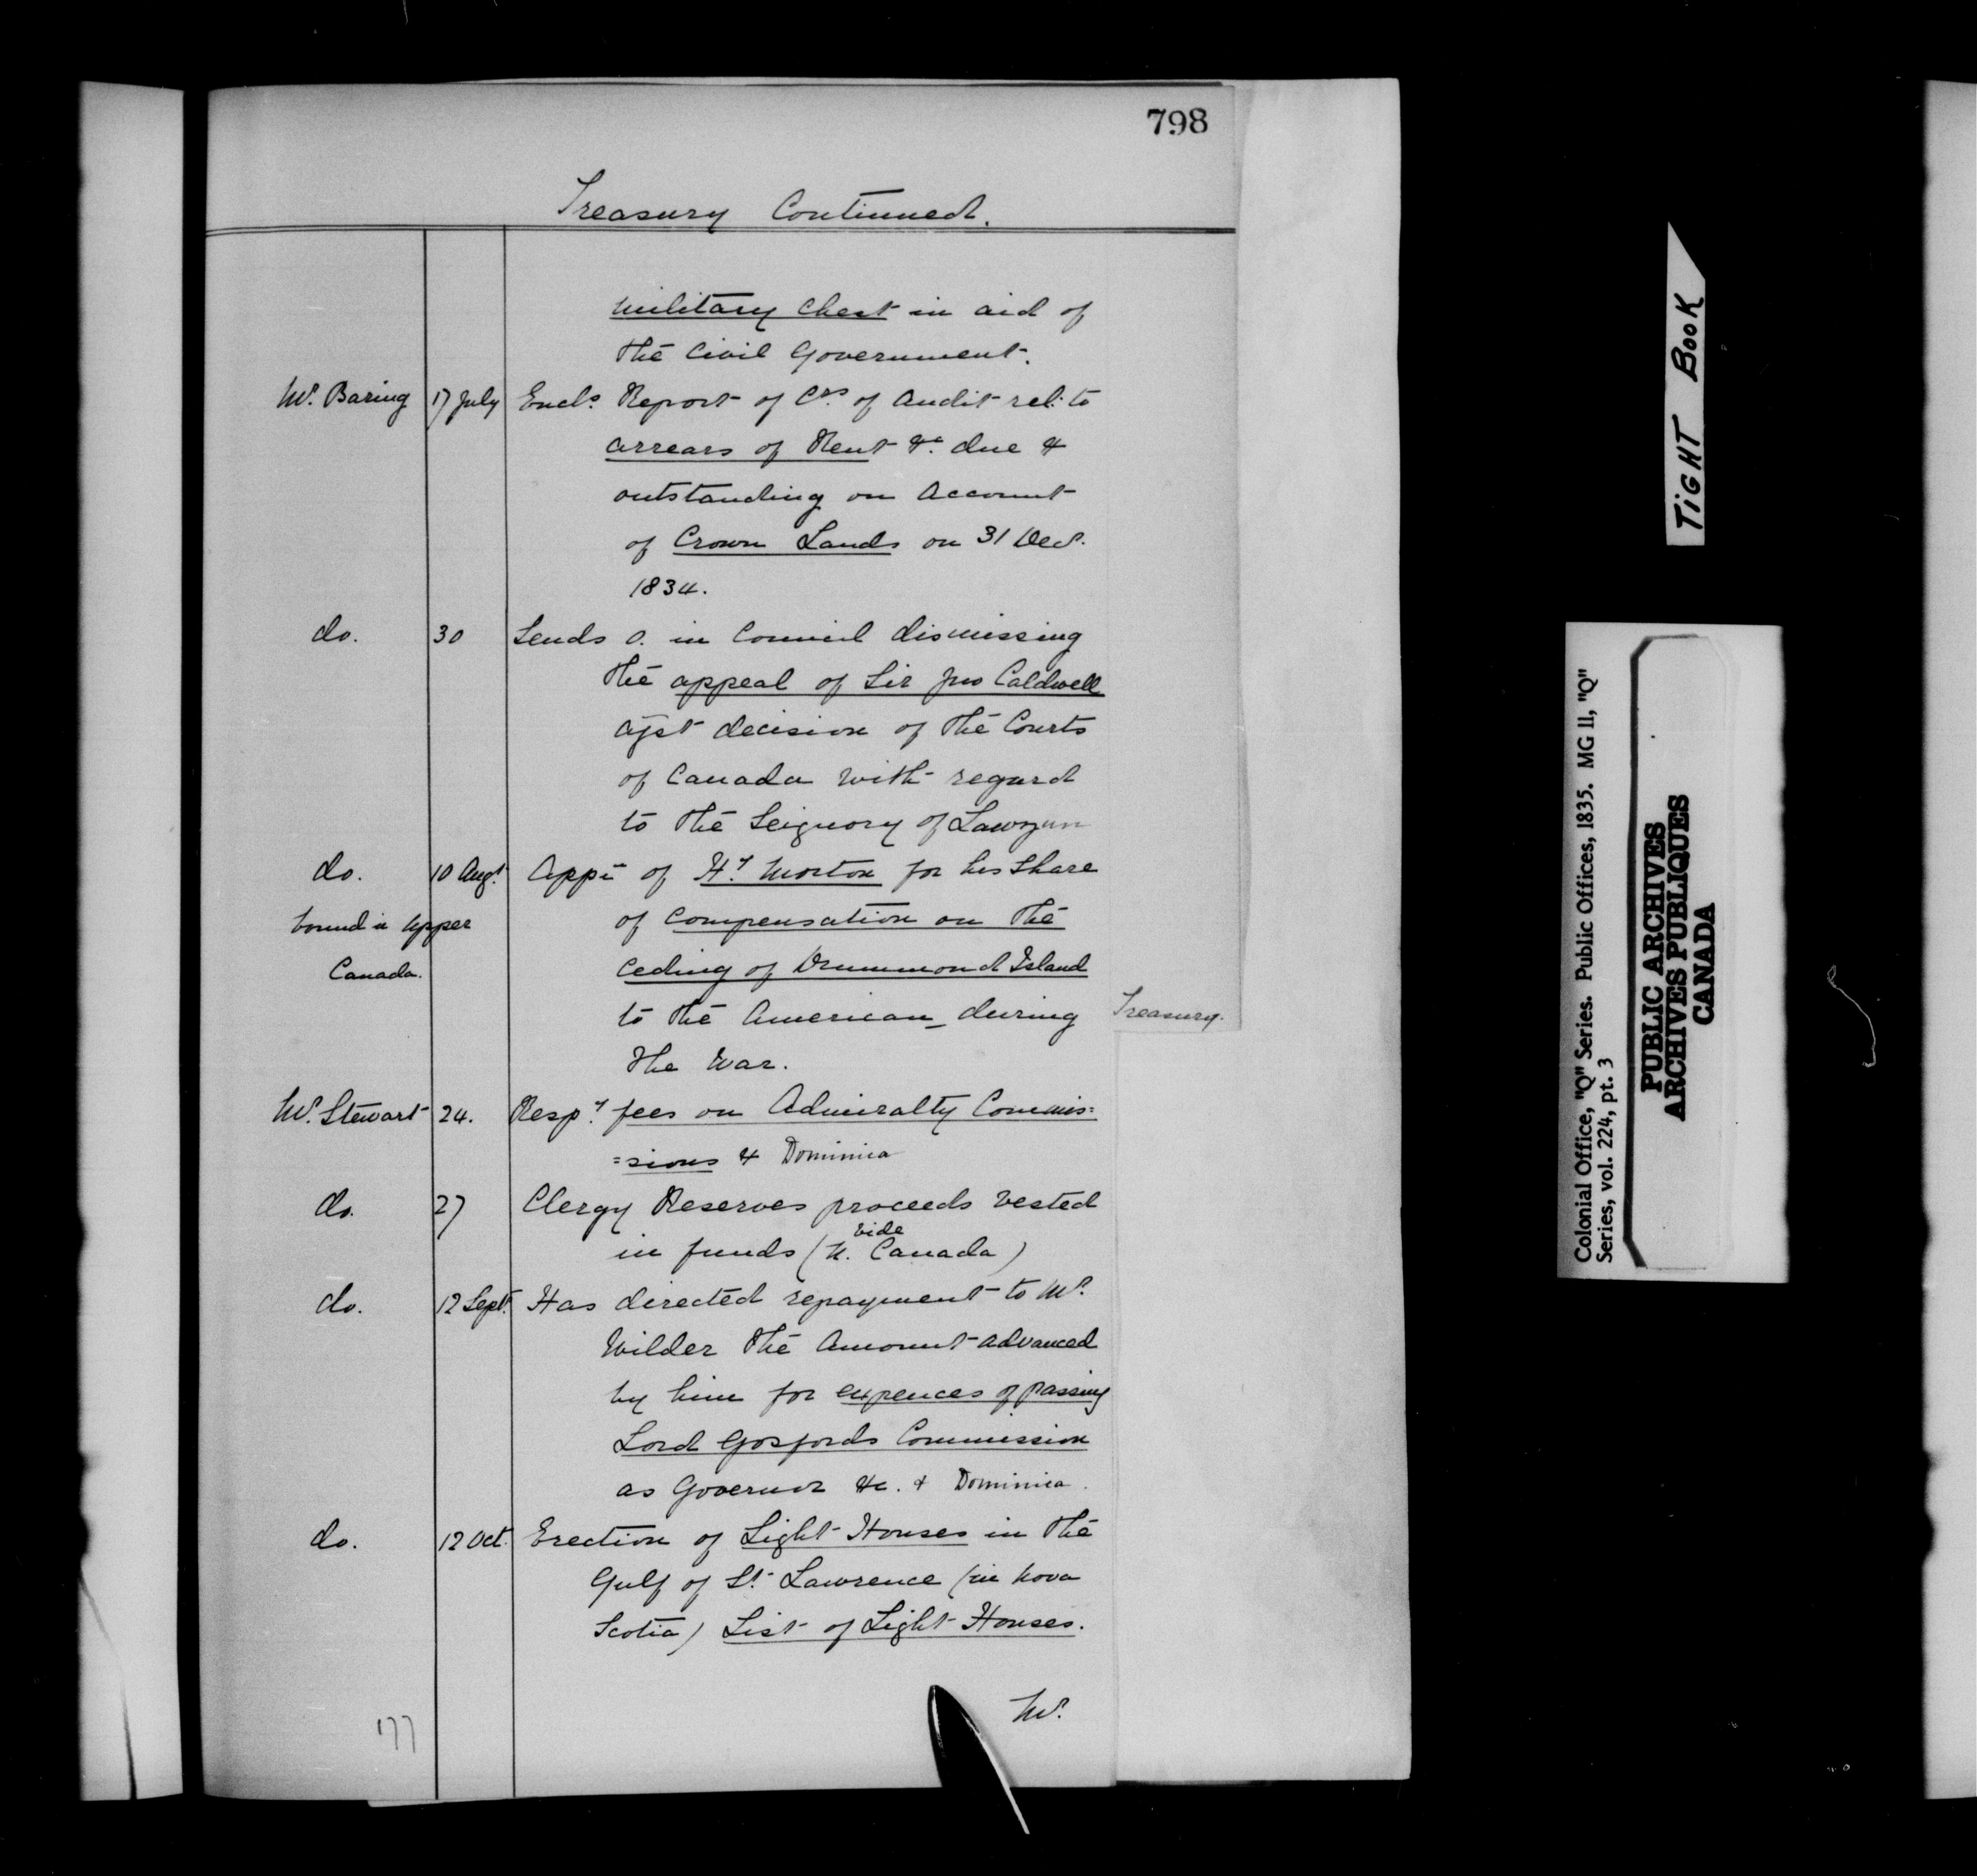 798
Treasury Continued.
Military Chest in aid of
the Civil Government.
Mr. Baring 17 July Encls. Report of Crs. of Audit rel: to
arrears of Rent &c. due &
outstanding on Account
of Crown Lands on 31 Decr.
1834.
do. 30 Sends O. in Council dismissing
the appeal of Sir Jno Caldwell
agst decision of the Courts
of Canada with regard
to the Seignory of Lawzun
do. 10 Augt. Appn of Hy. Morton for his share
bound in Upper of Compensation on the
Canada. Ceding of Drummond Island
to the American during
the War.
Treasury.
Mr. Stewart 24. Respg. fees on Admiralty Commis=
=sions & Dominica
do. 27 Clergy Reserves proceeds vested
in funds (vide U. Canada)
do. 12 Sept. Has directed repayment to Mr.
Wilder the Amount advanced
by him for expences of passing
Lord Gosfords Commission
as Governor &c. & Dominica.
do. 12 Oct. Erection of Light Houses in the
Gulf of St. Lawrence (in Nova
Scotia) List of Light Houses.
Mr.
177
TIGHT BOOK
Colonial Office, "Q" Series. Public Offices, 1835. MG 11, "Q"
Series, vol. 224, pt. 3
PUBLIC ARCHIVES
ARCHIVES PUBLIQUES
CANADA